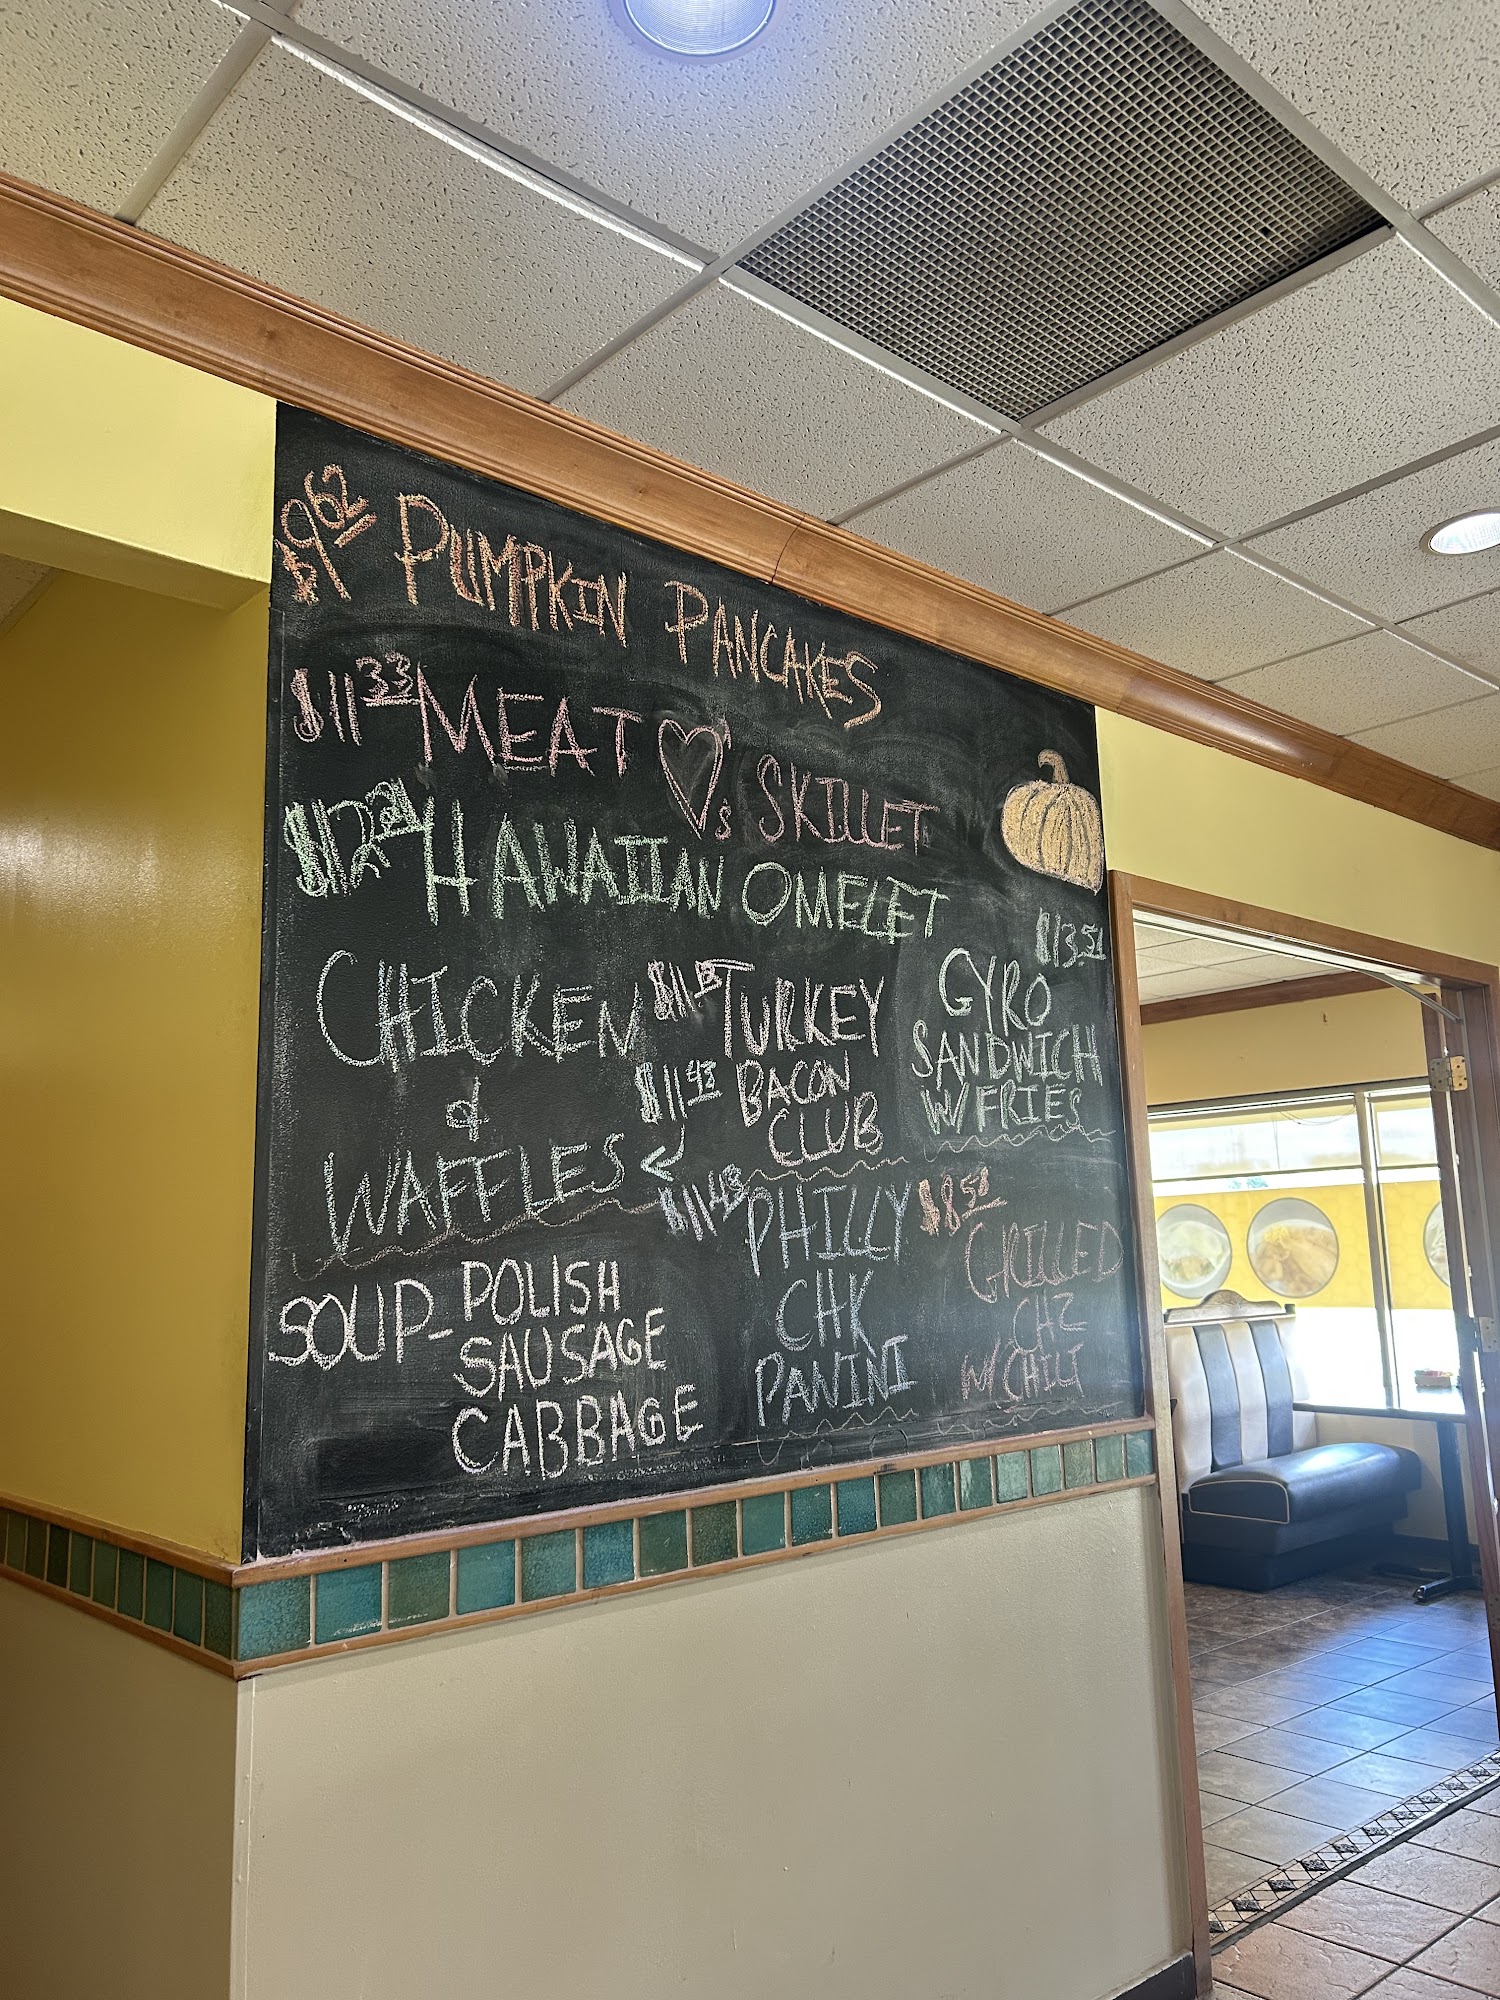 $9.62 PUMPKIN PANCAKES
$11.33 MEAT ♡'s SKILLET
HAWAIIAN OMELET
CHICKEN
&
WAFFLES
$11.43
TURKEY
BACON
CLUB
$13.51
GYRO
SANDWICH
W/ FRIES
SOUP - POLISH
SAUSAGE
CABBAGE
$11.43 PHILLY
CHK
PANINI
$8.51
GRILLED
CHZ
W/ CHILI